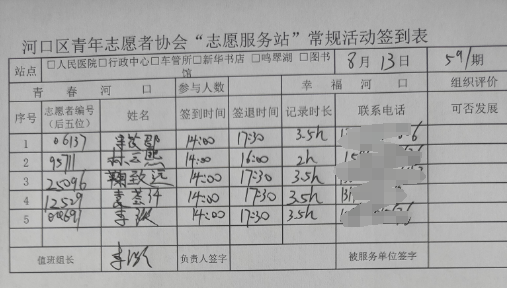 河口区青年志愿者协会“志愿服务站”常规活动签到表
站点 □人民医院□行政中心□车管所□新华书店 □鸣翠湖 □图书馆 8月13日 591期
青春河口 参与人数 幸福河口 组织评价
序号 志愿者编号（后五位） 姓名 签到时间 签退时间 记录时长 联系电话 可否发展
1 06137 14:00 17:30 3.5h
2 95711 14:00 16:00 2h
3 25096 鞠致远 14:00 17:30 3.5h
4 12529 14:00 17:30 3.5h
5 14:00 17:30 3.5h
值班组长 负责人签字 被服务单位签字